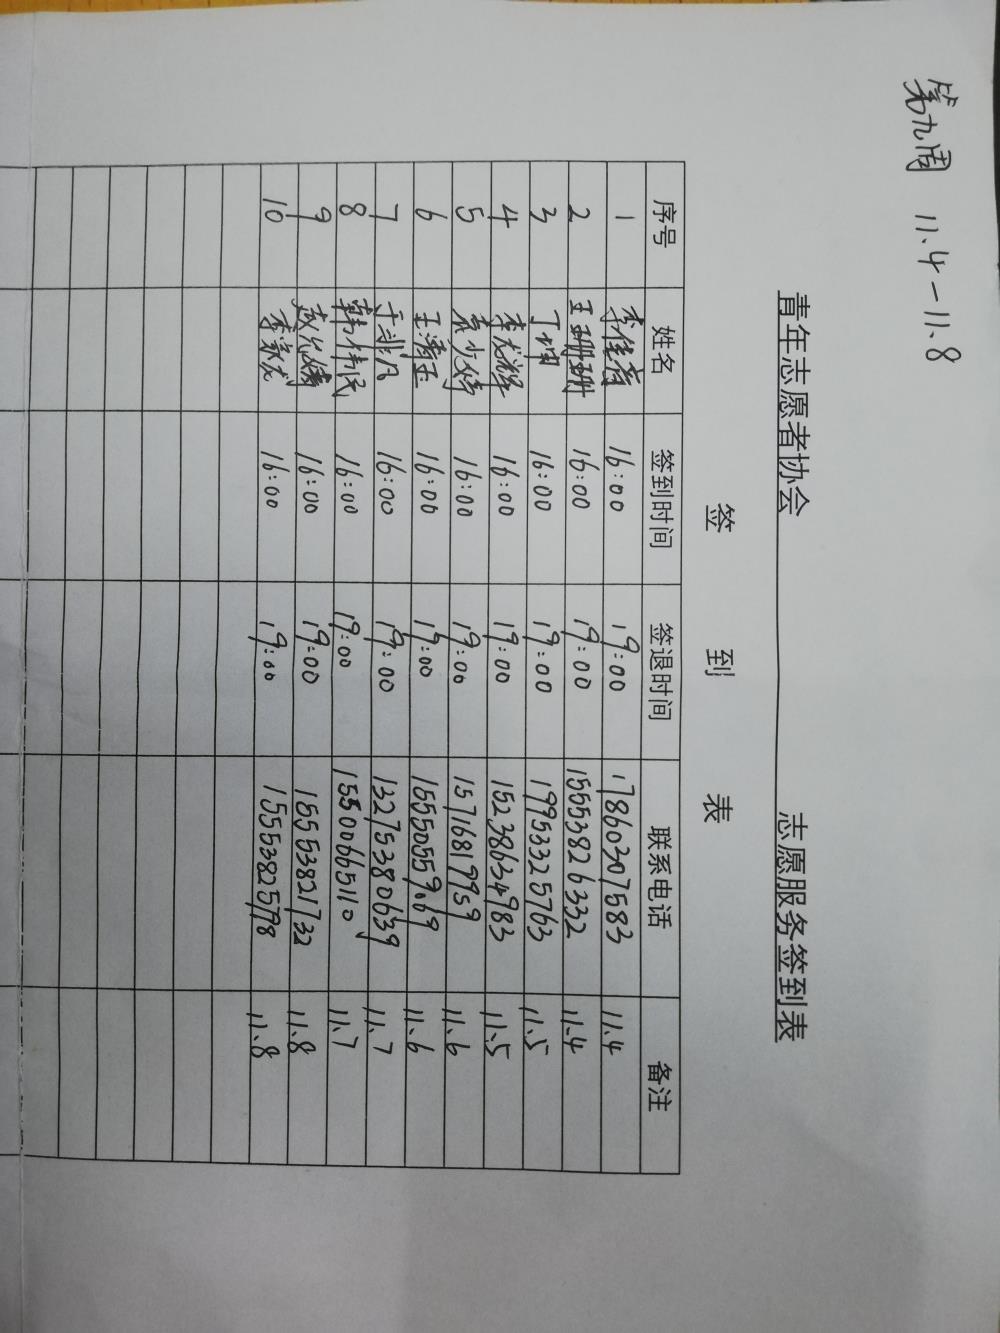 第九周 11.4-11.8
青年志愿者协会 志愿服务签到表
签 到 表
序号 姓名 签到时间 签退时间 联系电话 备注
1 李佳蓉 16:00 19:00 17860307583 11.4
2 王珊珊 16:00 19:00 15553826332 11.4
3 丁坤 16:00 19:00 19953325763 11.5
4 李龙辉 16:00 19:00 15238634983 11.5
5 16:00 19:00 15716817959 11.6
6 王清玉 16:00 19:00 15550559069 11.6
7 于非凡 16:00 19:00 13275380639 11.7
8 韩伟民 16:00 19:00 15500665110 11.7
9 16:00 19:00 15553821732 11.8
10 16:00 19:00 15553825798 11.8